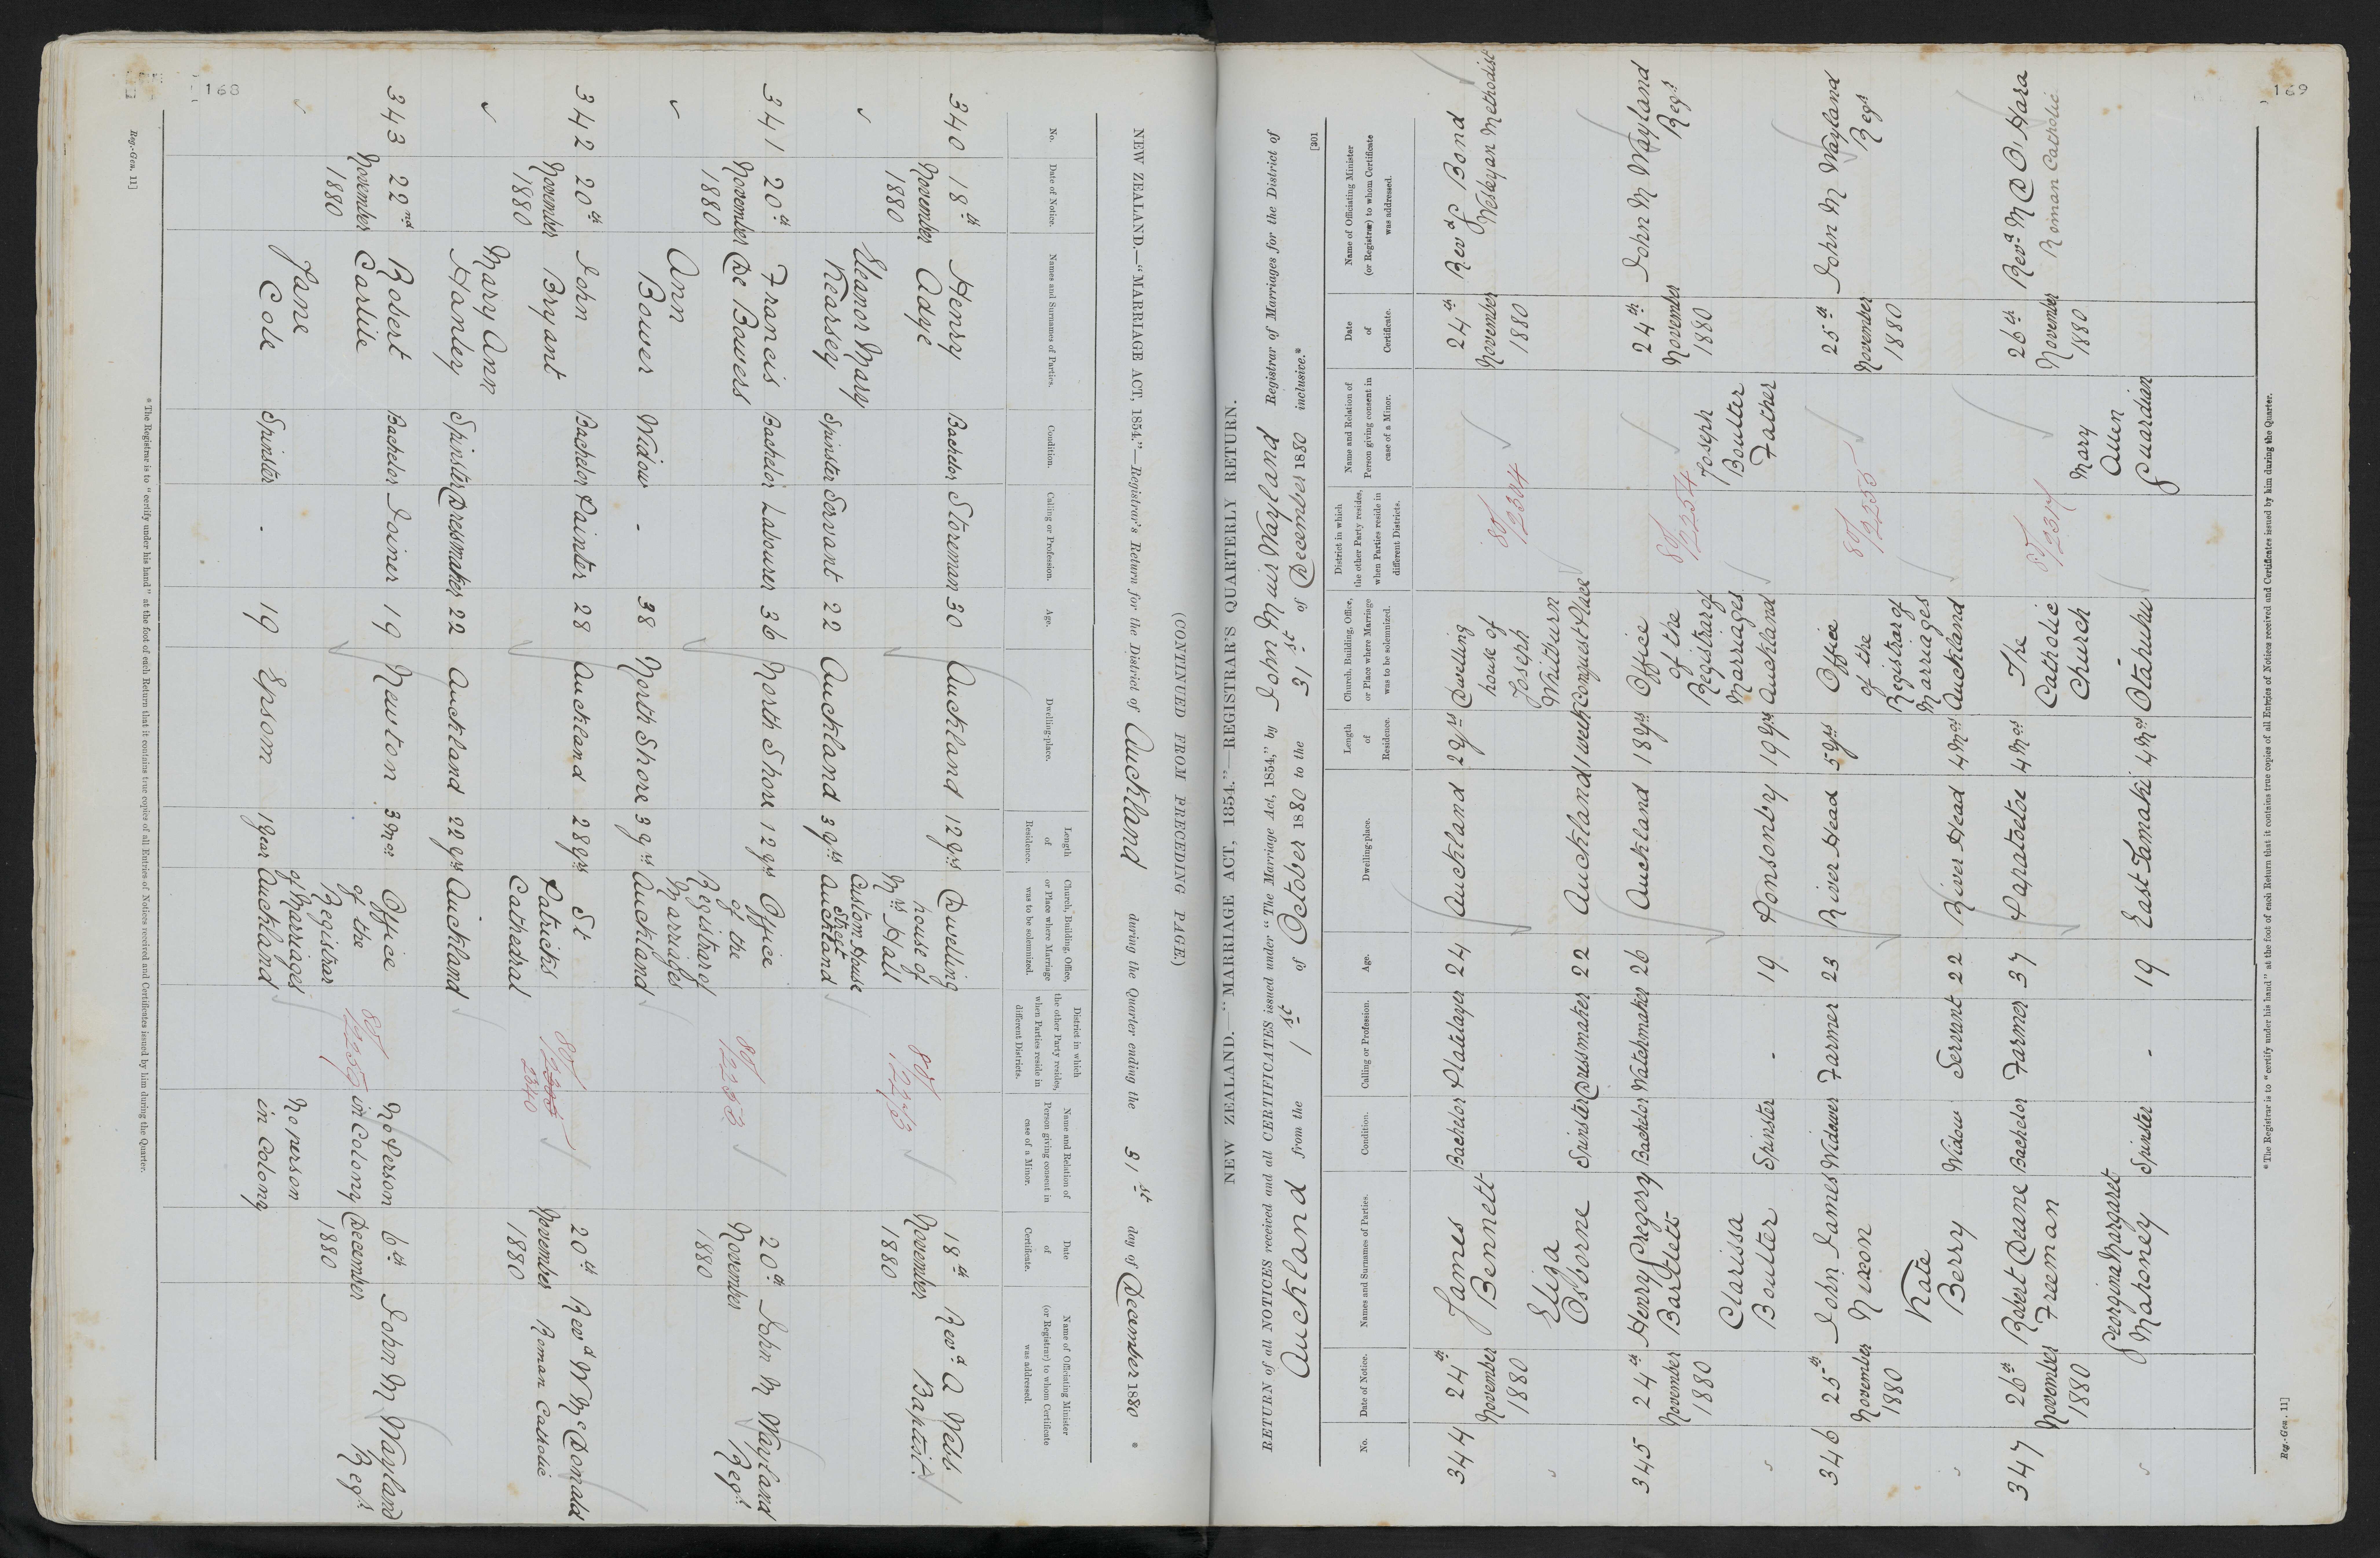 168
NEW ZEALAND.—"MARRIAGE ACT, 1854."—Registrar's Return for the District of Auckland during the Quarter ending the 31st day of December 1880 *
(CONTINUED FROM PRECEDING PAGE.)
No. Date of Notice. Names and Surnames of Parties. Condition. Calling or Profession. Age. Dwelling-place. Length of Residence. Church, Building, Office, or Place where Marriage was to be solemnized. District in which the other Party resides, when Parties reside in different Districts. Name and Relation of Person giving consent in case of a Minor. Date of Certificate. Name of Officiating Minister (or Registrar) to whom Certificate was addressed.
340 18th Henry Bachelor Storeman 30 Auckland 12 yrs Dwelling 80/2263 18th Revd A Webb
November Adge house of November Baptist
1880 Mrs Hall 1880
Eleanor Mary Custom House Street
Kearsey Spinster Servant 22 Auckland 3 yrs Auckland
341 20th Francis Bachelor Labourer 36 North Shore 12 yrs Office 80/2253 20th John M Wayland
November De Bowers of the November Regr
1880 Registrar of 1880
Ann Marriages
Bower Widow - 38 North Shore 3 yrs Auckland
342 20th John Bachelor Painter 28 Auckland 28 yrs St 80/ 20th Revd W McDonald
November Bryant Patricks 2340 November Roman Catholic
1880 Cathedral 1880
Mary Ann
Hanley Spinster Dressmaker 22 Auckland 22 yrs Auckland
343 22nd Robert Bachelor Joiner 19 Newton 3 mos Office 80/ No Person 6th John M Wayland
November Carlile of the in Colony December Regr
1880 Registrar 1880
Jane of Marriages No person
Cole Spinster - 19 Epsom 1 year Auckland in Colony
* The Registrar is to "certify under his hand" at the foot of each Return that it contains true copies of all Entries of Notices received and Certificates issued by him during the Quarter.
Reg.-Gen. 11]
169
[301
NEW ZEALAND.—"MARRIAGE ACT, 1854."—REGISTRAR'S QUARTERLY RETURN.
RETURN of all NOTICES received and all CERTIFICATES issued under "The Marriage Act, 1854," by John Muir Wayland Registrar of Marriages for the District of
Auckland from the 1st of October 1880 to the 31st of December 1880 inclusive.*
No. Date of Notice. Names and Surnames of Parties. Condition. Calling or Profession. Age. Dwelling-place. Length of Residence. Church, Building, Office, or Place where Marriage was to be solemnized. District in which the other Party resides, when Parties reside in different Districts. Name and Relation of Person giving consent in case of a Minor. Date of Certificate. Name of Officiating Minister (or Registrar) to whom Certificate was addressed.
344 24th James Bachelor Platelayer 24 Auckland 2 yrs Dwelling 80/2304 24th Revd J Bond
November Bennett house of November Wesleyan Methodist
1880 Joseph 1880
Eliza Whitburn
Osborne Spinster Dressmaker 22 Auckland 1 week Conquest Place
345 24th Henry Gregory Bachelor Watchmaker 26 Auckland 18 yrs Office 80/2254 24th John M Wayland
November Bartlett of the November Regr
1880 Registrar of Joseph 1880
Clarissa Marriages Boulter
Boulter Spinster - 19 Ponsonby 19 yrs Auckland Father
346 25th John James Widower Farmer 23 River Head 5 yrs Office 80/2255 25th John M Wayland
November Nixon of the November Regr
1880 Registrar of 1880
Kate Marriages
Berry Widow Servant 22 River Head 4 Mos Auckland
347 26th Robert Deane Bachelor Farmer 37 Papatoetoe 4 Mos The 80/2317 26th Revd M D O'Hara
November Freeman Catholic November Roman Catholic
1880 Church Mary 1880
Georgina Margaret Allen
Mahoney Spinster - 19 East Tamaki 4 Mos Otahuhu Guardian
* The Registrar is to "certify under his hand" at the foot of each Return that it contains true copies of all Entries of Notices received and Certificates issued by him during the Quarter.
Reg.-Gen. 11]